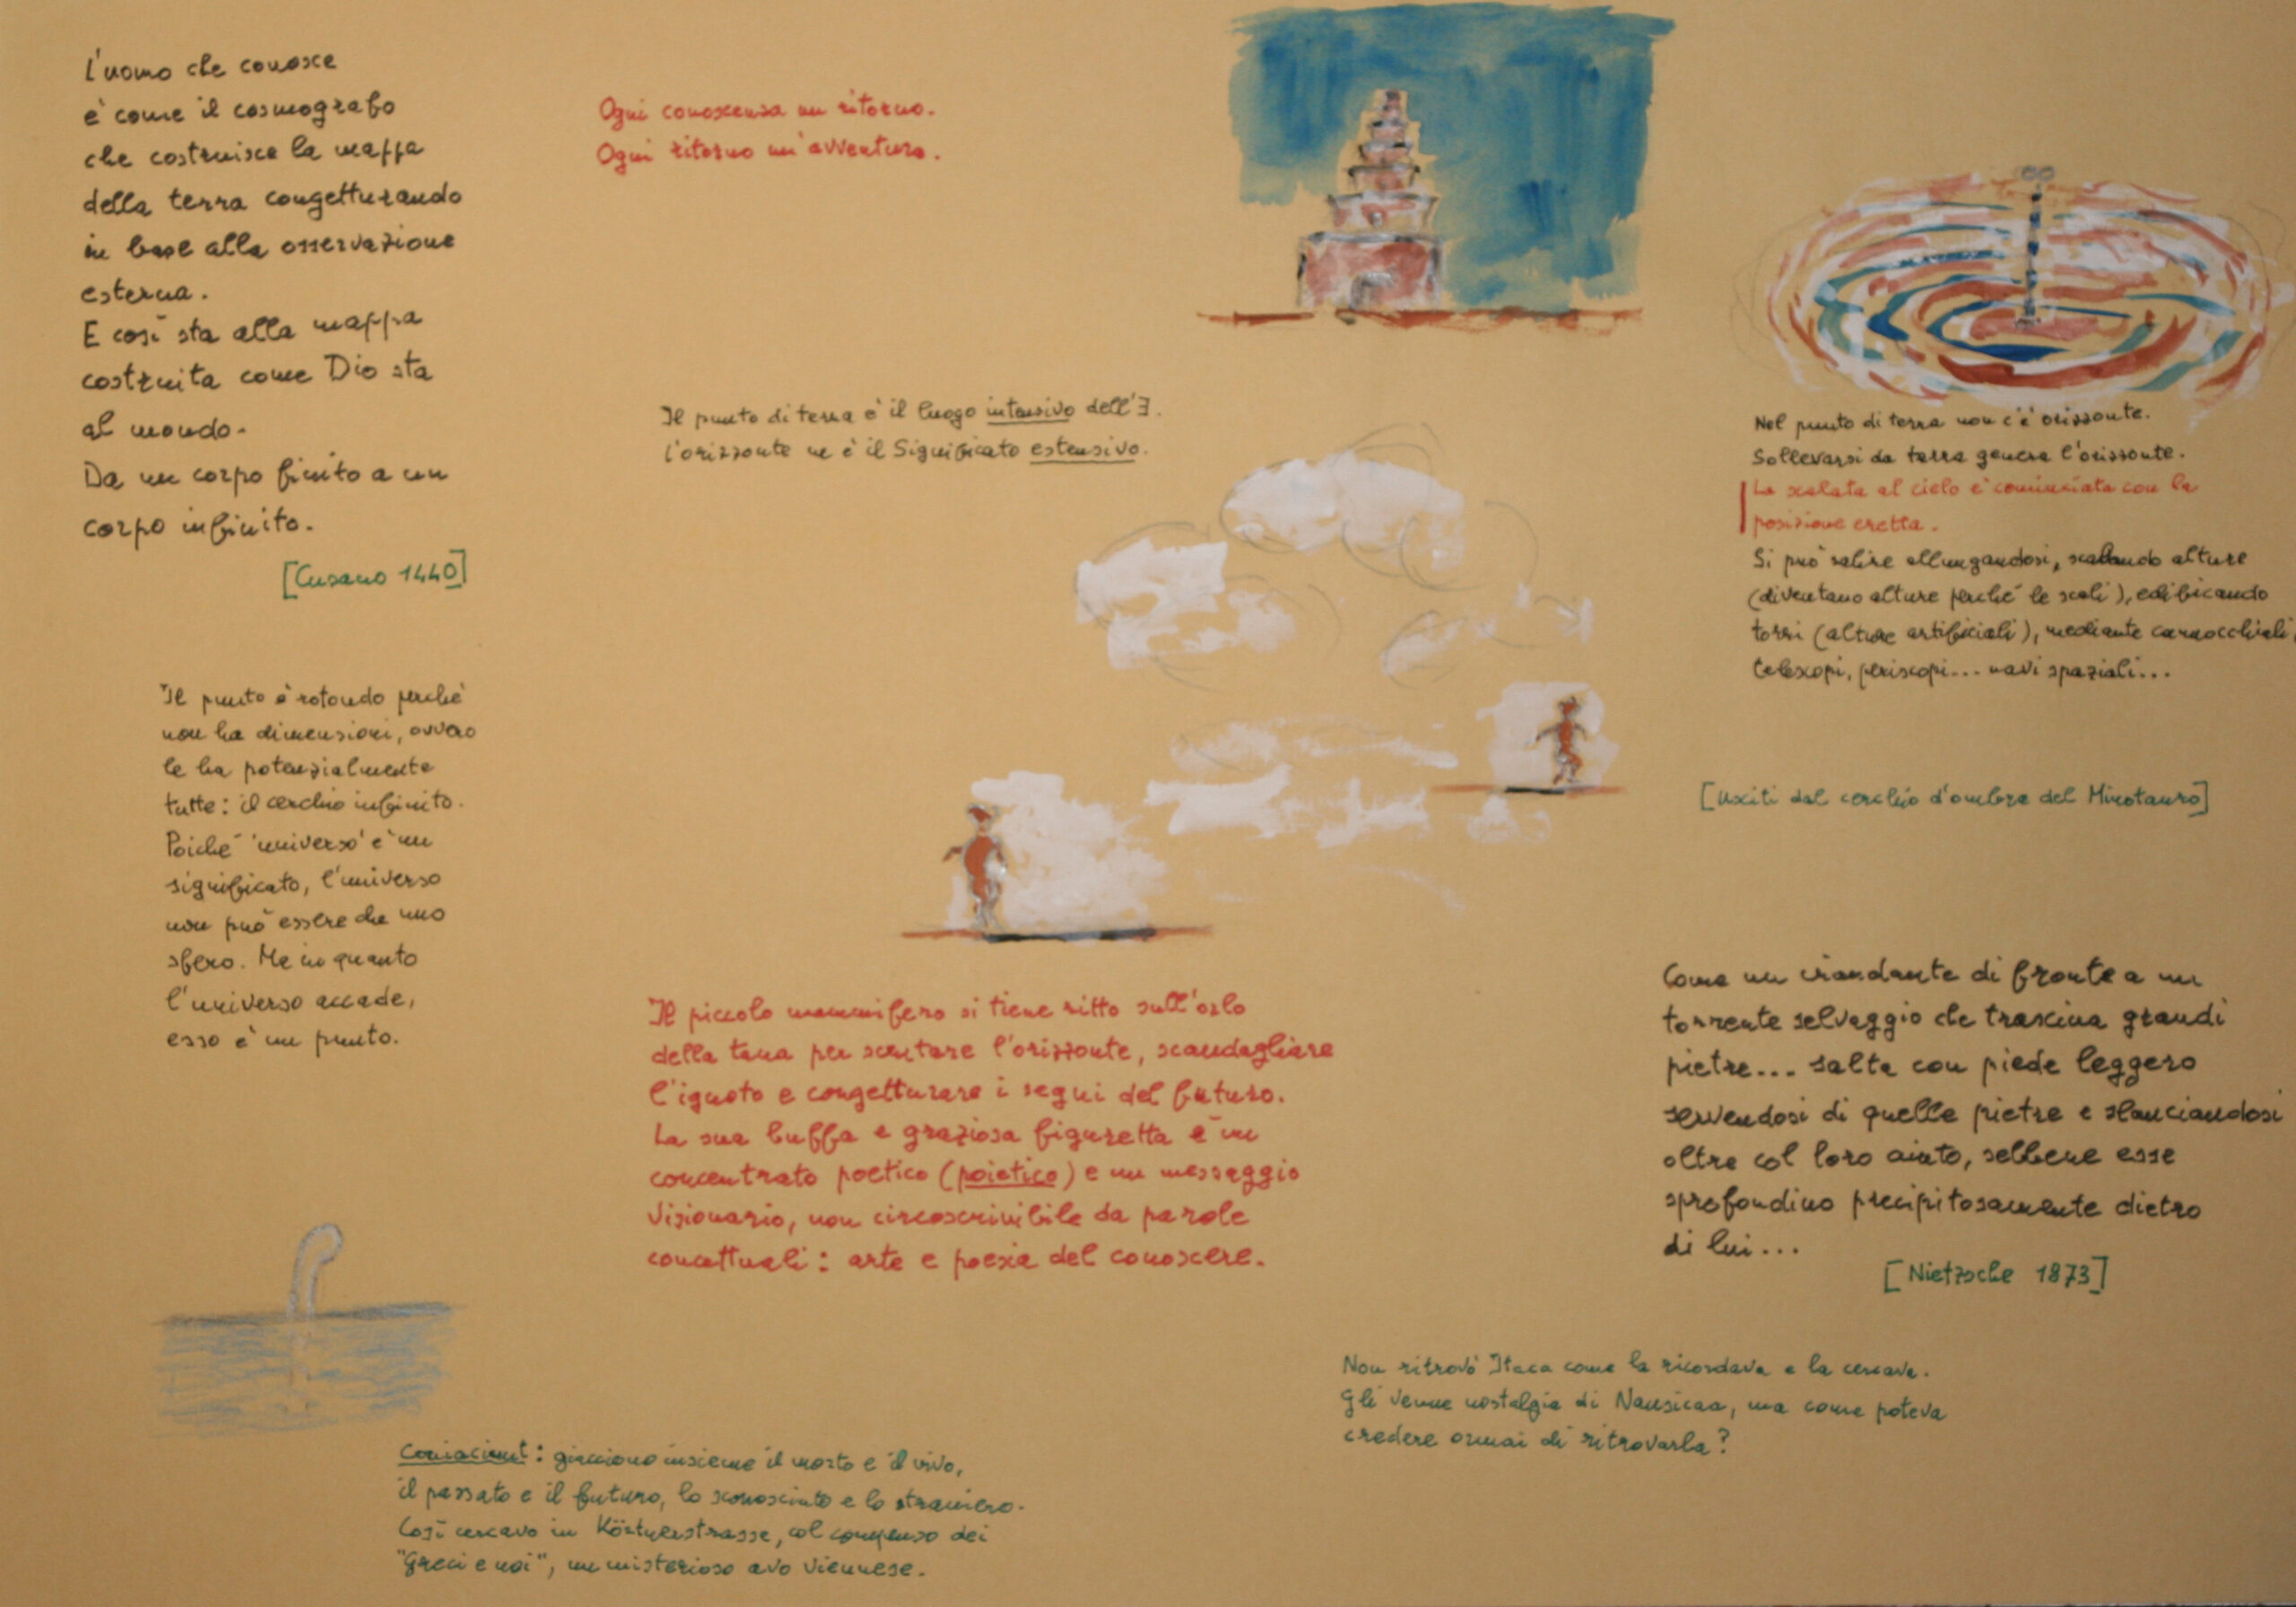 L'uomo che conosce
è come il cosmografo
che costruisce la mappa
della terra congetturando
in base alla osservazione
esterna.
E così sta alla mappa
costruita come Dio sta
al mondo.
Da un corpo finito a un
corpo infinito.
[Cusano 1440]
Ogni conoscenza un ritorno.
Ogni ritorno un'avventura.
Il punto di terra è il luogo intensivo dell'∃.
L'orizzonte ne è il Significato estensivo.
Nel punto di terra non c'è orizzonte.
Sollevarsi da terra genera l'orizzonte.
La scalata al cielo è cominciata con la
posizione eretta.
Si può salire allungandosi, scalando alture
(diventano alture perché le scali), edificando
torri (alture artificiali), mediante cannocchiali,
telescopi, periscopi... navi spaziali...
[Usciti dal cerchio d'ombra del Minotauro]
Il punto è rotondo perché
non ha dimensioni, ovvero
le ha potenzialmente
tutte: il cerchio infinito.
Poiché 'universo' è un
significato, l'universo
non può essere che uno
sfero. Ma in quanto
l'universo accade,
esso è un punto.
Il piccolo mammifero si tiene ritto sull'orlo
della tana per scrutare l'orizzonte, scandagliare
l'ignoto e congetturare i segni del futuro.
La sua buffa e graziosa figuretta è un
concentrato poetico (poietico) e un messaggio
visionario, non circoscrivibile da parole
concettuali: arte e poesia del conoscere.
Come un viandante di fronte a un
torrente selvaggio che trascina grandi
pietre... salta con piede leggero
servendosi di quelle pietre e slanciandosi
oltre col loro aiuto, sebbene esse
sprofondino precipitosamente dietro
di lui...
[Nietzsche 1873]
Non ritrovò Itaca come la ricordava e la cercava.
Gli venne nostalgia di Nausicaa, ma come poteva
credere ormai di ritrovarla?
Coniaciunt: giacciono insieme il morto e il vivo,
il passato e il futuro, lo sconosciuto e lo straniero.
Così cercavo in Körtnerstrasse, col compenso dei
"Greci e noi", un misterioso avo viennese.